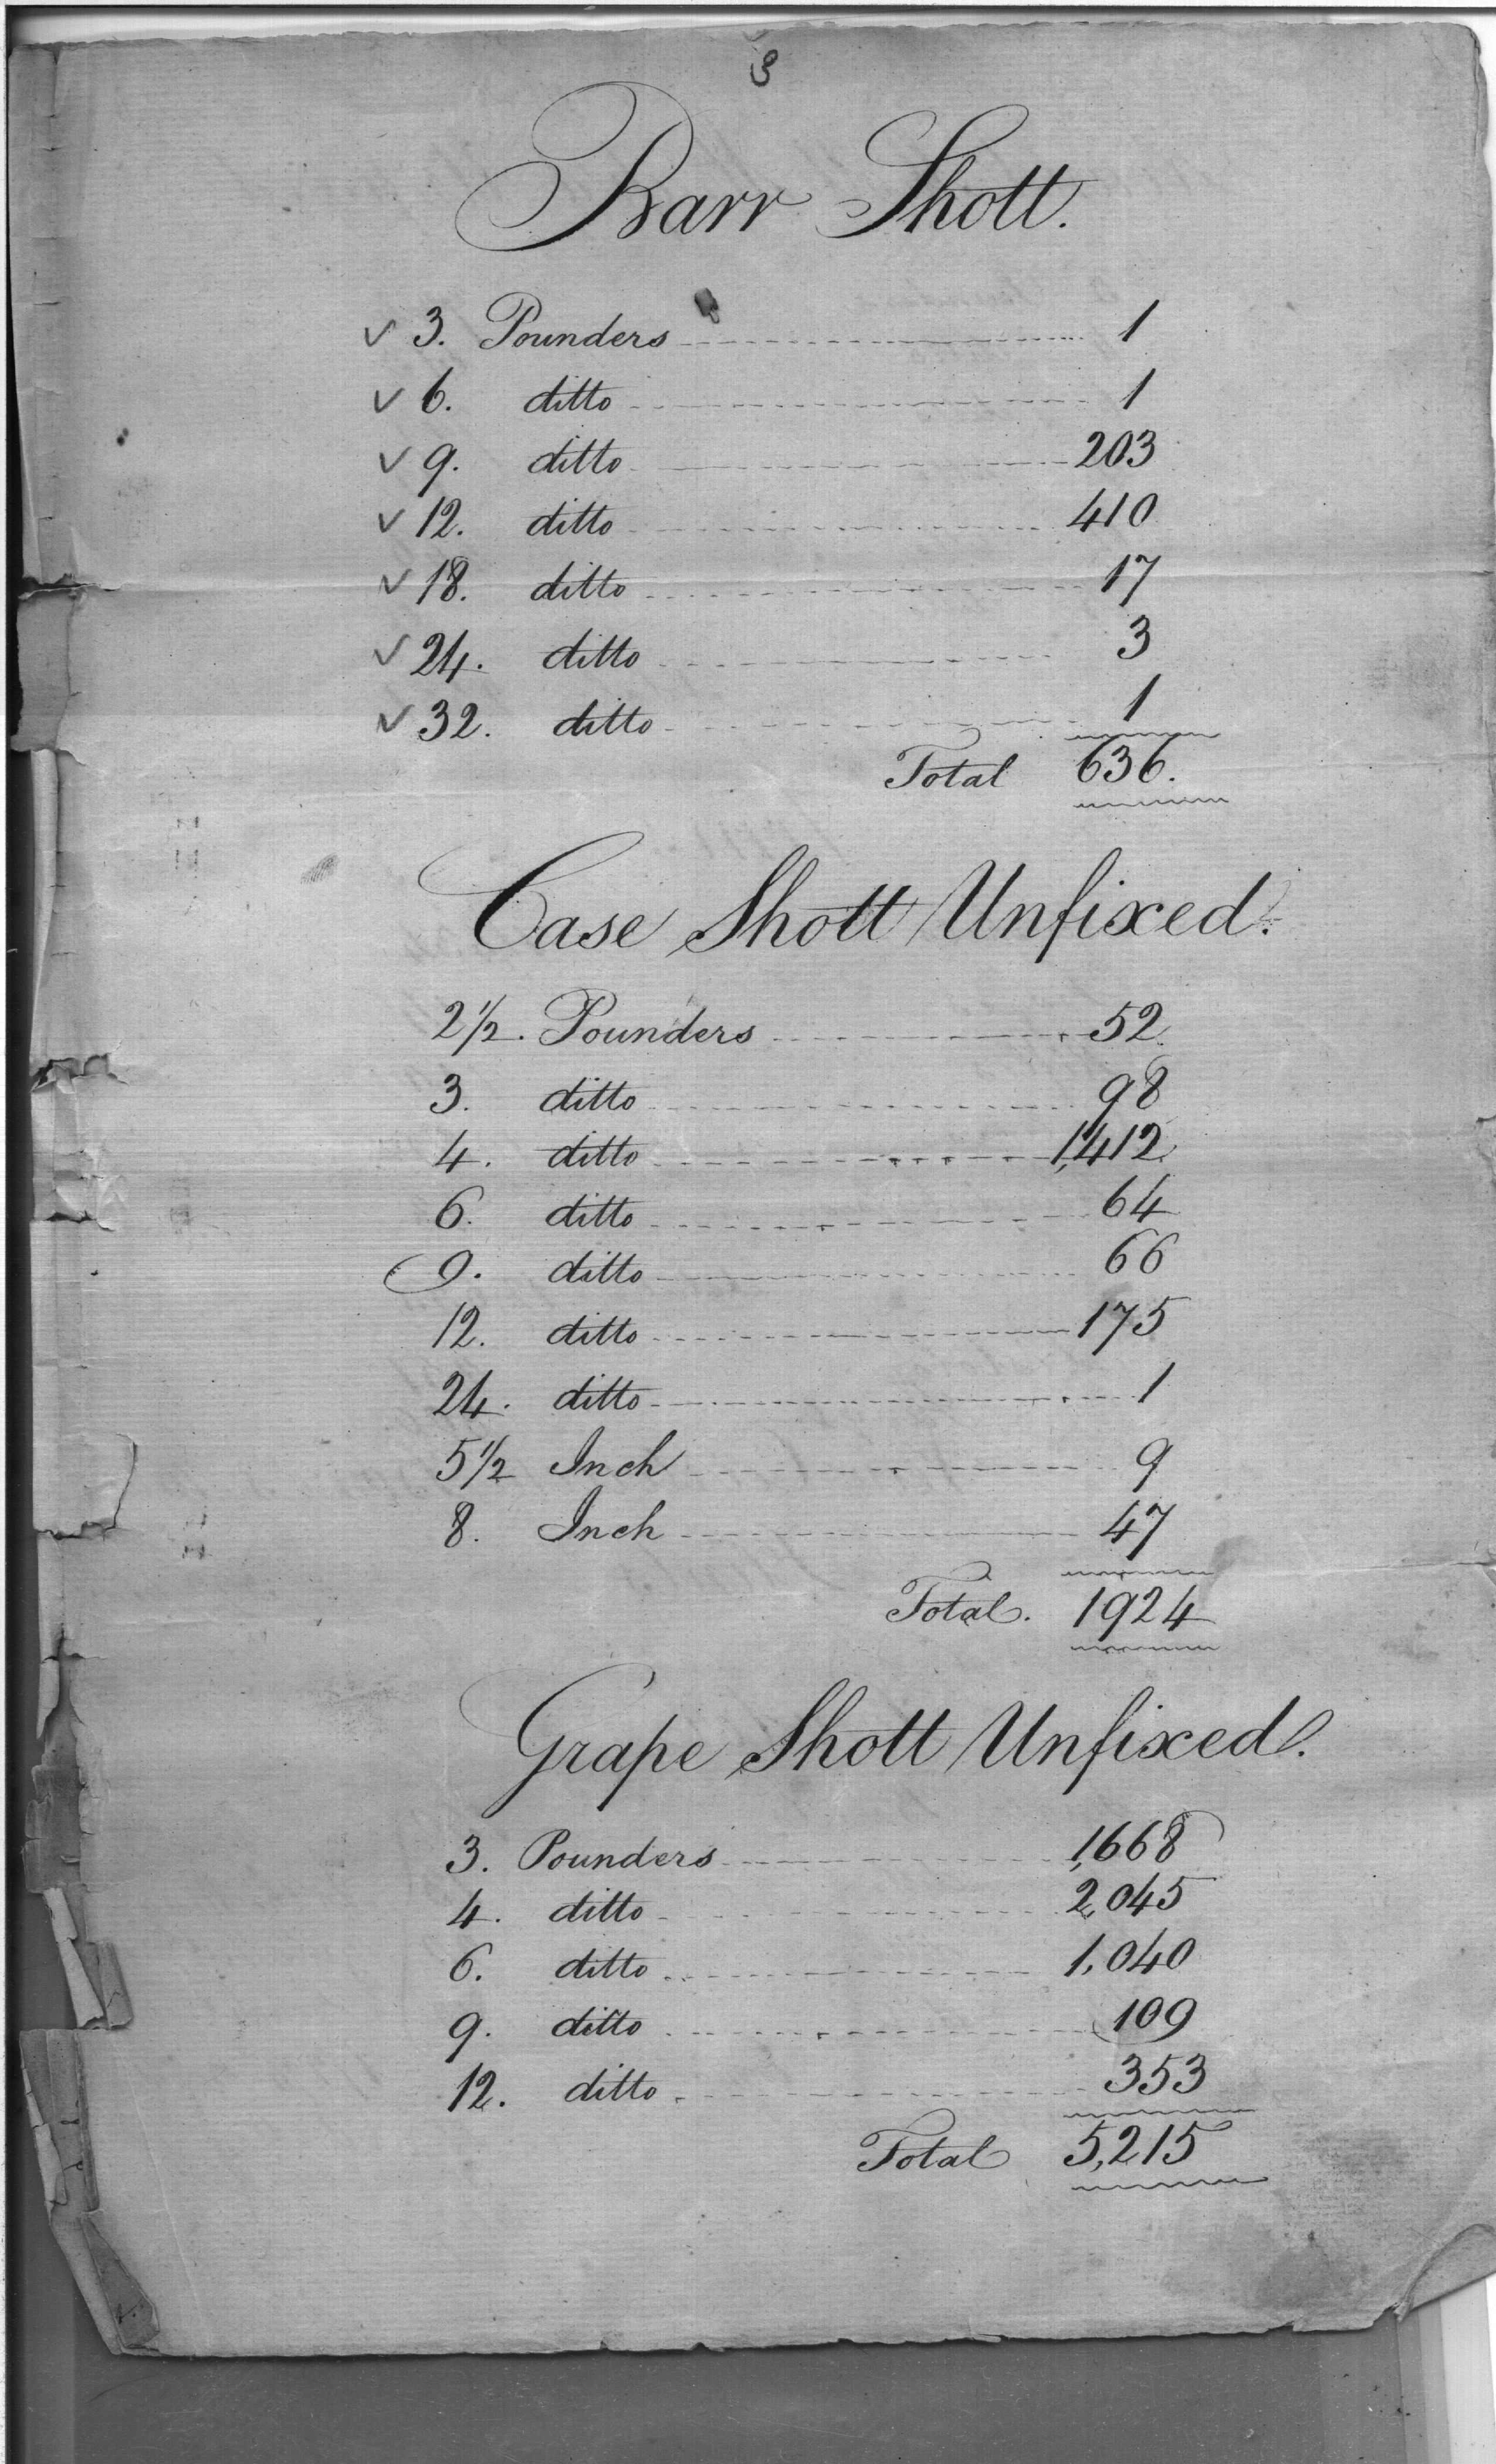 3
Barr Shott.
✓ 3. Pounders 1
✓ 6. ditto 1
✓ 9. ditto 203
✓ 12. ditto 410
✓ 18. ditto 17
✓ 24. ditto 3
✓ 32. ditto 1
Total 636.
Case Shott Unfixed.
2 1/2. Pounders 52
3. ditto 98
4. ditto 1,412
6. ditto 64
9. ditto 66
12. ditto 175
24. ditto 1
5 1/2 Inch 9
8. Inch 47
Total. 1924
Grape Shott Unfixed.
3. Pounders 1,668
4. ditto 2,045
6. ditto 1,040
9. ditto 109
12. ditto 353
Total 5,215